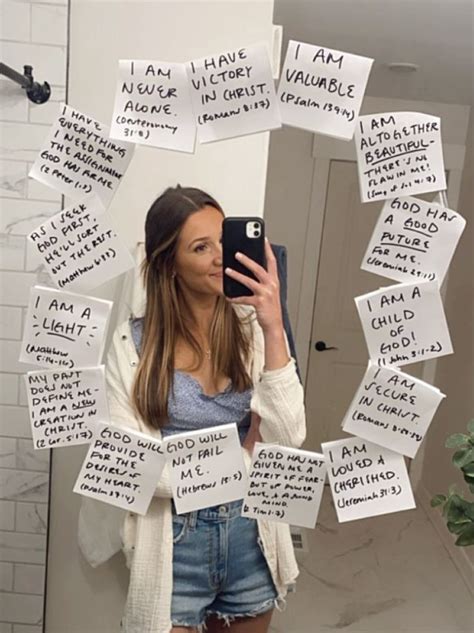 I AM
NEVER
ALONE.
(Deuteronomy
31:8)
I HAVE
VICTORY
IN CHRIST.
(Romans 8:37)
I AM
VALUABLE
(Psalm 139:14)
I AM
ALTOGETHER
BEAUTIFUL-
THERE'S NO
FLAW IN ME!
4:7)
GOD HAS
A GOOD
FUTURE
FOR ME.
(Jeremiah 29:11)
I AM A
CHILD
OF
GOD!
(1 John 3:1-2)
I AM
SECURE
IN CHRIST.
(Romans
I AM
LOVED &
CHERISHED.
(Jeremiah 31:3)
GOD HAS NOT
GIVEN ME A
SPIRIT OF FEAR-
BUT OF POWER,
LOVE, & A SOUND
MIND.
(2 Tim 1:7)
GOD WILL
NOT FAIL
ME.
(Hebrews 13:5)
GOD WILL
PROVIDE
FOR THE
DESIRES OF
MY HEART.
(Psalm 37:4)
MY PAST
DOES NOT
DEFINE ME-
I AM A NEW
CREATION IN
CHRIST.
(2 Cor. 5:17)
I AM A
LIGHT!
(Matthew
5:14-16)
AS I SEEK
GOD FIRST,
HE'LL SORT
OUT THE REST.
(Matthew 6:33)
I HAVE
EVERYTHING
I NEED FOR
THE ASSIGNMENT
GOD HAS 4 ME.
(2 Peter 1:3)